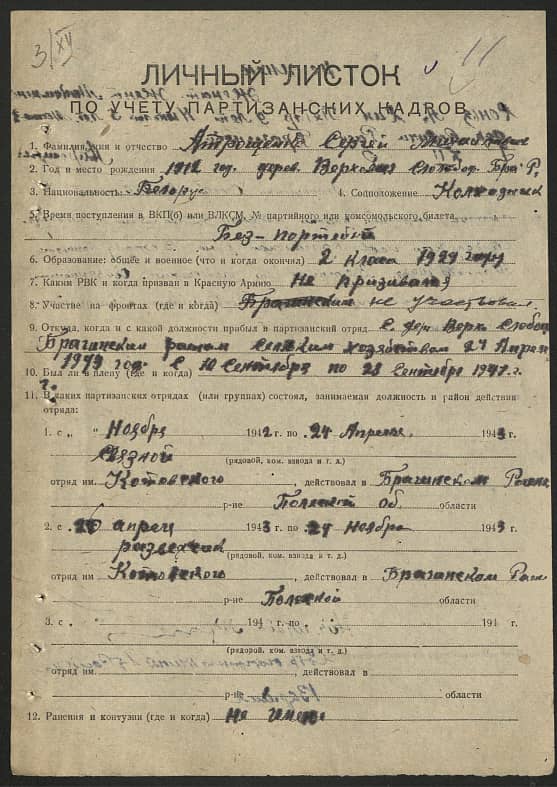 3/XII
11
ЛИЧНЫЙ ЛИСТОК
ПО УЧЕТУ ПАРТИЗАНСКИХ КАДРОВ
1. Фамилия, имя и отчество Сергей
2. Год и место рождения 1912 год. дерев. Верхов Слобод. Браг. Р.
3. Национальность: Белорус 4. Соцположение Колхозник
5. Время поступления в ВКП(б) или ВЛКСМ, № партийного или комсомольского билета
Без-портебый
6. Образование: общее и военное (что и когда окончил) 2 класа 1929 году
7. Каким РВК и когда призван в Красную Армию Не призивался
8. Участие на фронтах (где и когда) не участвовал
9. Откуда, когда и с какой должности прибыл в партизанский отряд С дер. Верх. Слобод
Брагинским хозяйством 24 Апрел
1943 год.
10. Был ли в плену (где и когда) С 10 Сентебра по 28 Сентебра 1941. г.
11. В каких партизанских отрядах (или группах) состоял, занимаемая должность и район действия
отряда:
1. с „ “ Ноября 1942 г. по 24 Апреля 1943 г.
Связной
(рядовой, ком. взвода и т. д.)
отряд им. Котовского, действовал в Брагинском
р-не об. области
2. с 26 апрел 1943 г. по 27 Ноября 1943 г.
разведчик
(рядовой, ком. взвода и т. д.)
отряд им Котовского, действовал в Брагинском
р-не области
3. с 194 г. по 194 г.
(рядорой, ком. взвода и т. д.)
отряд им. , действовал в
р-не области
12. Ранения и контузии (где и когда) Не имею